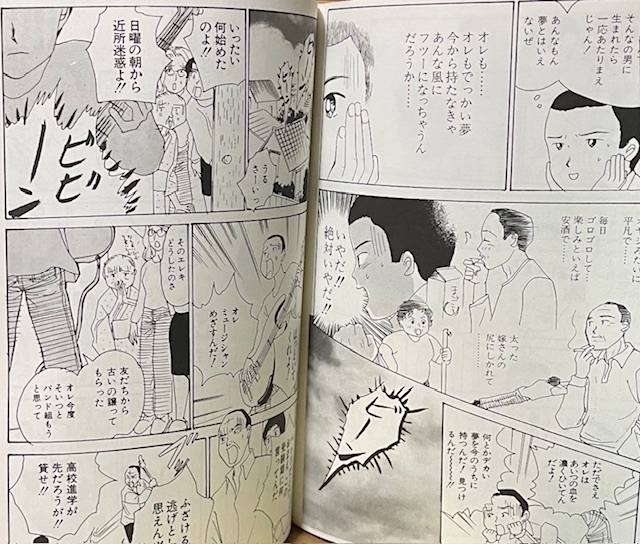 そんなの男に
生まれたら
一応あたりまえ
じゃん!
あんなもん
夢とはいえ
ないぜ
オレも……
オレもでっかい夢
今から持たなきゃ
あんな風に
フツーになっちゃうん
だろうか……
平凡で……
毎日
ゴロゴロして…
楽しみといえば
安酒で……
太った
嫁さんの
尻にしかれて
…………
いやだ!!
絶対いやだ!!
ただでさえ
オレは
あいつの血を
濃くひいてん
だぜ!
何とかデカい
夢を今のうちに
持つんだ!見つけ
るんだ〜〜〜!!
いったい
何始めた
のよ!!
日曜の朝から
近所迷惑よ!!
うる
さーいっ
ビビーン
オレ
ミュージシャン
めざすんだ!
そのエレキ
どうしたのさ
友だちから
古いの譲って
もらった
オレ今度
そいつと
バンド組もう
と思って
ふざける
高校進学が
先だろうが!!
貸せ!!